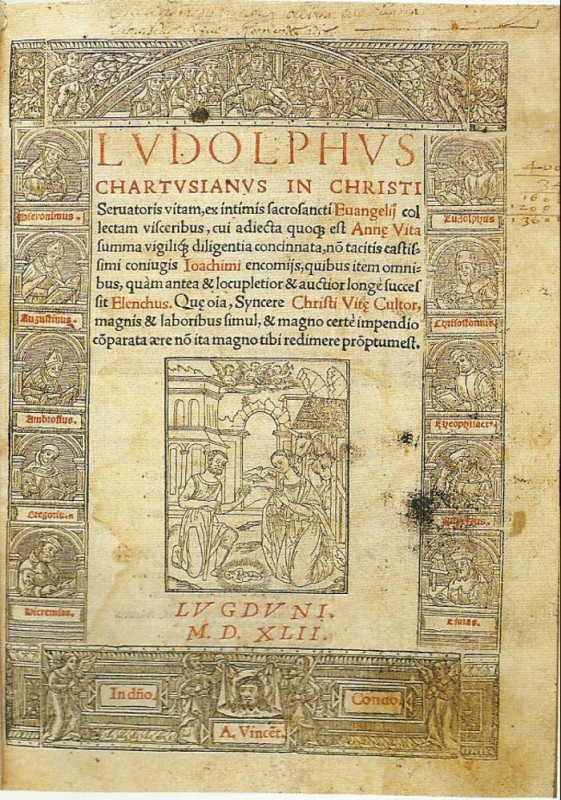 LVDOLPHVS
CHARTVSIANVS IN CHRISTI
Seruatoris vitam, ex intimis sacrosancti Euangelij col
lectam visceribus, cui adiecta quoqꝫ est Annę Vita
summa vigiliqꝫ diligentia concinnata, nõ tacitis castis-
simi coniugis Ioachimi encomijs, quibus item omni-
bus, quàm antea & locupletior & auctior longè succes
sit Elenchus. Quę oĩa, Syncere Christi Vitę Cultor,
magnis & laboribus simul, & magno certè impendio
cõparata ære nõ ita magno tibi redimere prõptum est.
Hieronimus.
Augustinus.
Ambrosius.
Gregoriꝰ.
Hieremias.
Ludolphus
Chrisostomus
Theophilactꝰ.
LVGDVNI.
M. D. XLII.
In dño.
Confido.
A. Vincẽt.